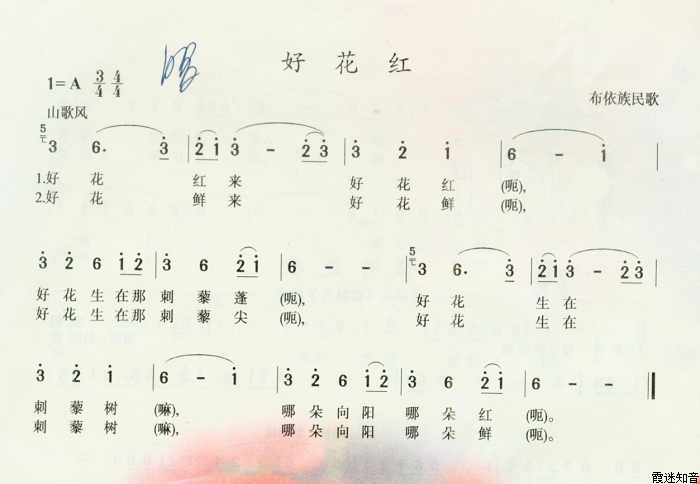 好花红
1=A 3/4 4/4
布依族民歌
山歌风
5 3 6· 3 | 2 1 3 - 2 3 | 3 2 1 | 6 - 1 |
1.好 花 红 来 好 花 红 (呃),
2.好 花 鲜 来 好 花 鲜 (呃),
3 2 6 1 2 | 3 6 2 1 | 6 - - | 5 3 6· 3 | 2 1 3 - 2 3 |
好 花 生 在 那 刺 藜 蓬 (呃), 好 花 生 在
好 花 生 在 那 刺 藜 尖 (呃), 好 花 生 在
3 2 1 | 6 - 1 | 3 2 6 1 2 | 3 6 2 1 | 6 - - ‖
刺 藜 树 (嘛), 哪 朵 向 阳 哪 朵 红 (呃)。
刺 藜 树 (嘛), 哪 朵 向 阳 哪 朵 鲜 (呃)。
霞迷知音